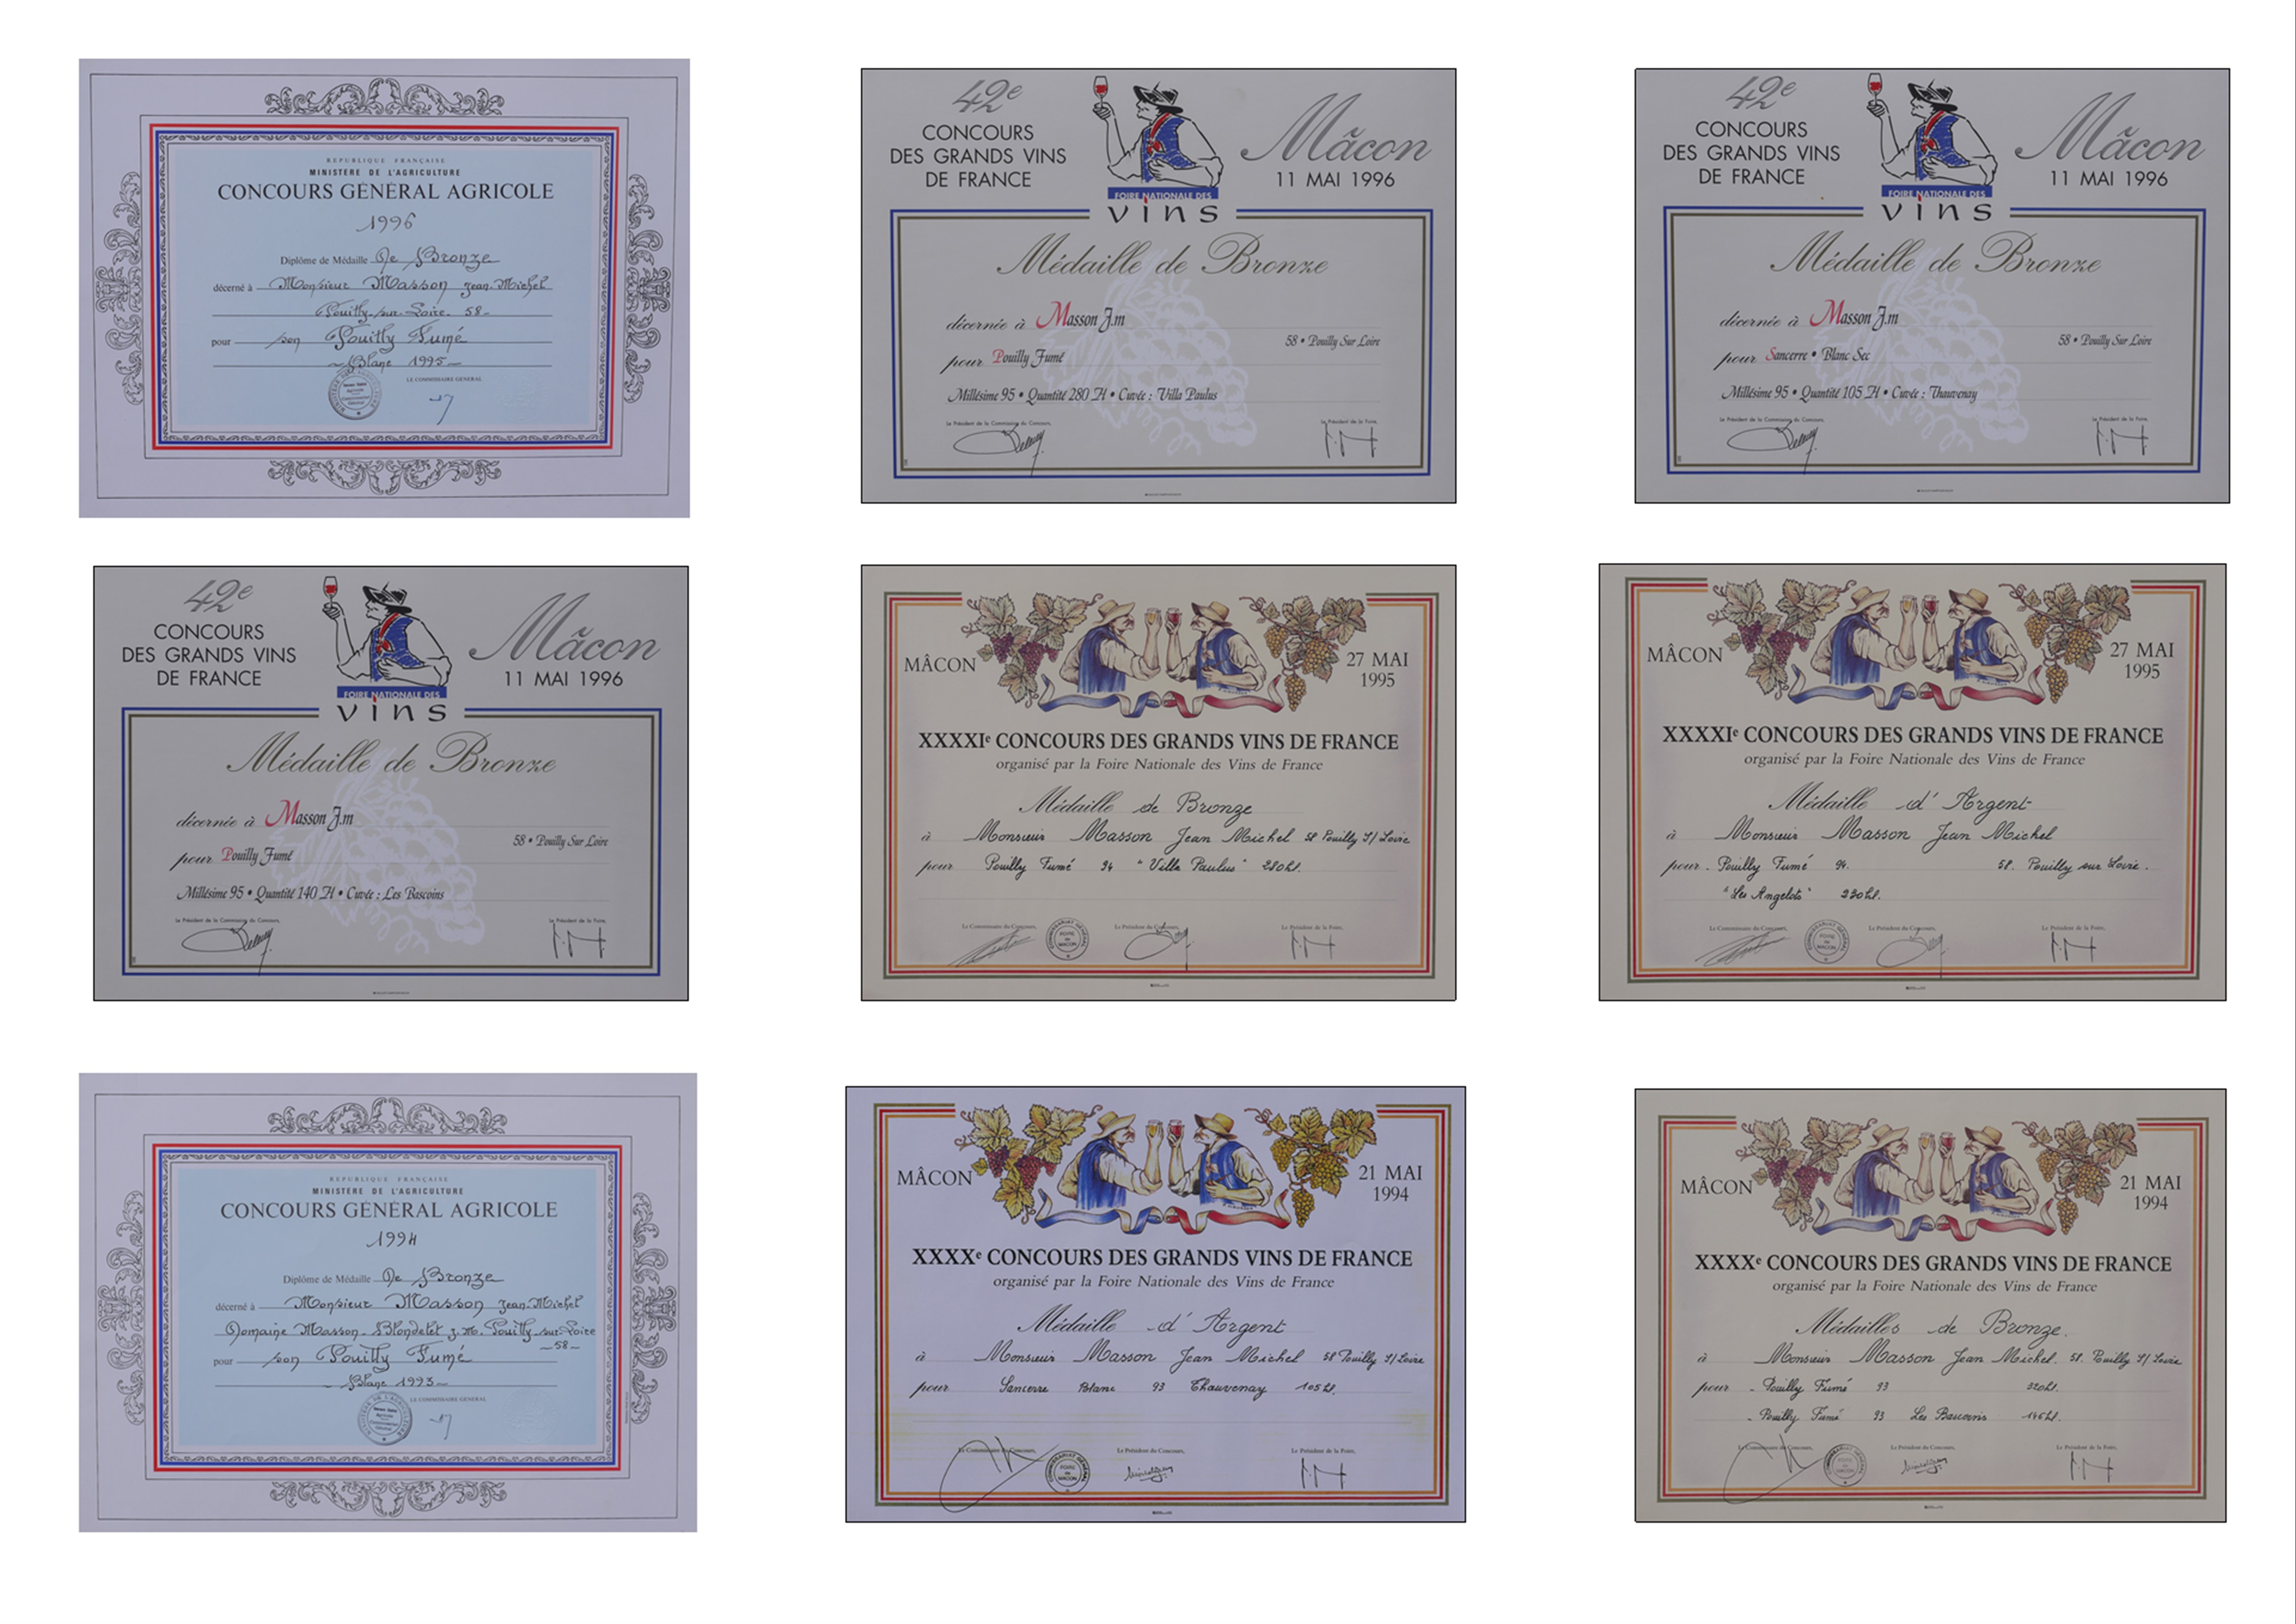 REPUBLIQUE FRANÇAISE
MINISTERE DE L'AGRICULTURE
CONCOURS GÉNÉRAL AGRICOLE
1996
Diplôme de Médaille De Bronze
décerné à Monsieur Masson Jean-Michel
Pouilly-sur-Loire - 58 -
pour son Pouilly Fumé
- Blanc 1995 -
LE COMMISSAIRE GENERAL
42e
CONCOURS
DES GRANDS VINS
DE FRANCE
Mâcon
11 MAI 1996
FOIRE NATIONALE DES
vins
Médaille de Bronze
décernée à Masson J.m
58 • Pouilly Sur Loire
pour Pouilly Fumé
Millésime 95 • Quantité 280 H • Cuvée : Villa Paulus
Le Président de la Commission du Concours,
Le Président de la Foire,
42e
CONCOURS
DES GRANDS VINS
DE FRANCE
Mâcon
11 MAI 1996
FOIRE NATIONALE DES
vins
Médaille de Bronze
décernée à Masson J.m
58 • Pouilly Sur Loire
pour Sancerre • Blanc Sec
Millésime 95 • Quantité 105 H • Cuvée : Thauvenay
Le Président de la Commission du Concours,
Le Président de la Foire,
42e
CONCOURS
DES GRANDS VINS
DE FRANCE
Mâcon
11 MAI 1996
FOIRE NATIONALE DES
vins
Médaille de Bronze
décernée à Masson J.m
58 • Pouilly Sur Loire
pour Pouilly Fumé
Millésime 95 • Quantité 140 H • Cuvée : Les Bascoins
Le Président de la Commission du Concours,
Le Président de la Foire,
MÂCON
27 MAI
1995
XXXXIe CONCOURS DES GRANDS VINS DE FRANCE
organisé par la Foire Nationale des Vins de France
Médaille de Bronze
à Monsieur Masson Jean Michel 58 Pouilly S/ Loire
pour Pouilly Fumé 94 "Villa Paulus" 280hl.
Le Commissaire du Concours,
COMMISSARIAT GÉNÉRAL FOIRE de MACON
Le Président du Concours,
Le Président de la Foire,
MÂCON
27 MAI
1995
XXXXIe CONCOURS DES GRANDS VINS DE FRANCE
organisé par la Foire Nationale des Vins de France
Médaille d'Argent
à Monsieur Masson Jean Michel
pour - Pouilly Fumé 94. 58. Pouilly sur Loire.
"Les Angelots" 230hl.
Le Commissaire du Concours,
COMMISSARIAT GÉNÉRAL FOIRE de MACON
Le Président du Concours,
Le Président de la Foire,
REPUBLIQUE FRANÇAISE
MINISTERE DE L'AGRICULTURE
CONCOURS GÉNÉRAL AGRICOLE
1994
Diplôme de Médaille De Bronze
décerné à Monsieur Masson Jean-Michel
Domaine Masson-Blondelet J.M. Pouilly-sur-Loire
- 58 -
pour son Pouilly Fumé
- Blanc 1993 -
LE COMMISSAIRE GENERAL
MÂCON
21 MAI
1994
XXXXe CONCOURS DES GRANDS VINS DE FRANCE
organisé par la Foire Nationale des Vins de France
Médaille d'Argent
à Monsieur Masson Jean Michel 58 Pouilly S/ Loire
pour Sancerre Blanc 93 Thauvenay 105hl.
Le Commissaire du Concours,
COMMISSARIAT GÉNÉRAL FOIRE de MACON
Le Président du Concours,
Le Président de la Foire,
MÂCON
21 MAI
1994
XXXXe CONCOURS DES GRANDS VINS DE FRANCE
organisé par la Foire Nationale des Vins de France
Médailles de Bronze.
à Monsieur Masson Jean Michel. 58. Pouilly S/ Loire
pour - Pouilly Fumé 93 320hl.
- Pouilly Fumé 93 Les Bascoins 146hl.
Le Commissaire du Concours,
Le Président du Concours,
Le Président de la Foire,